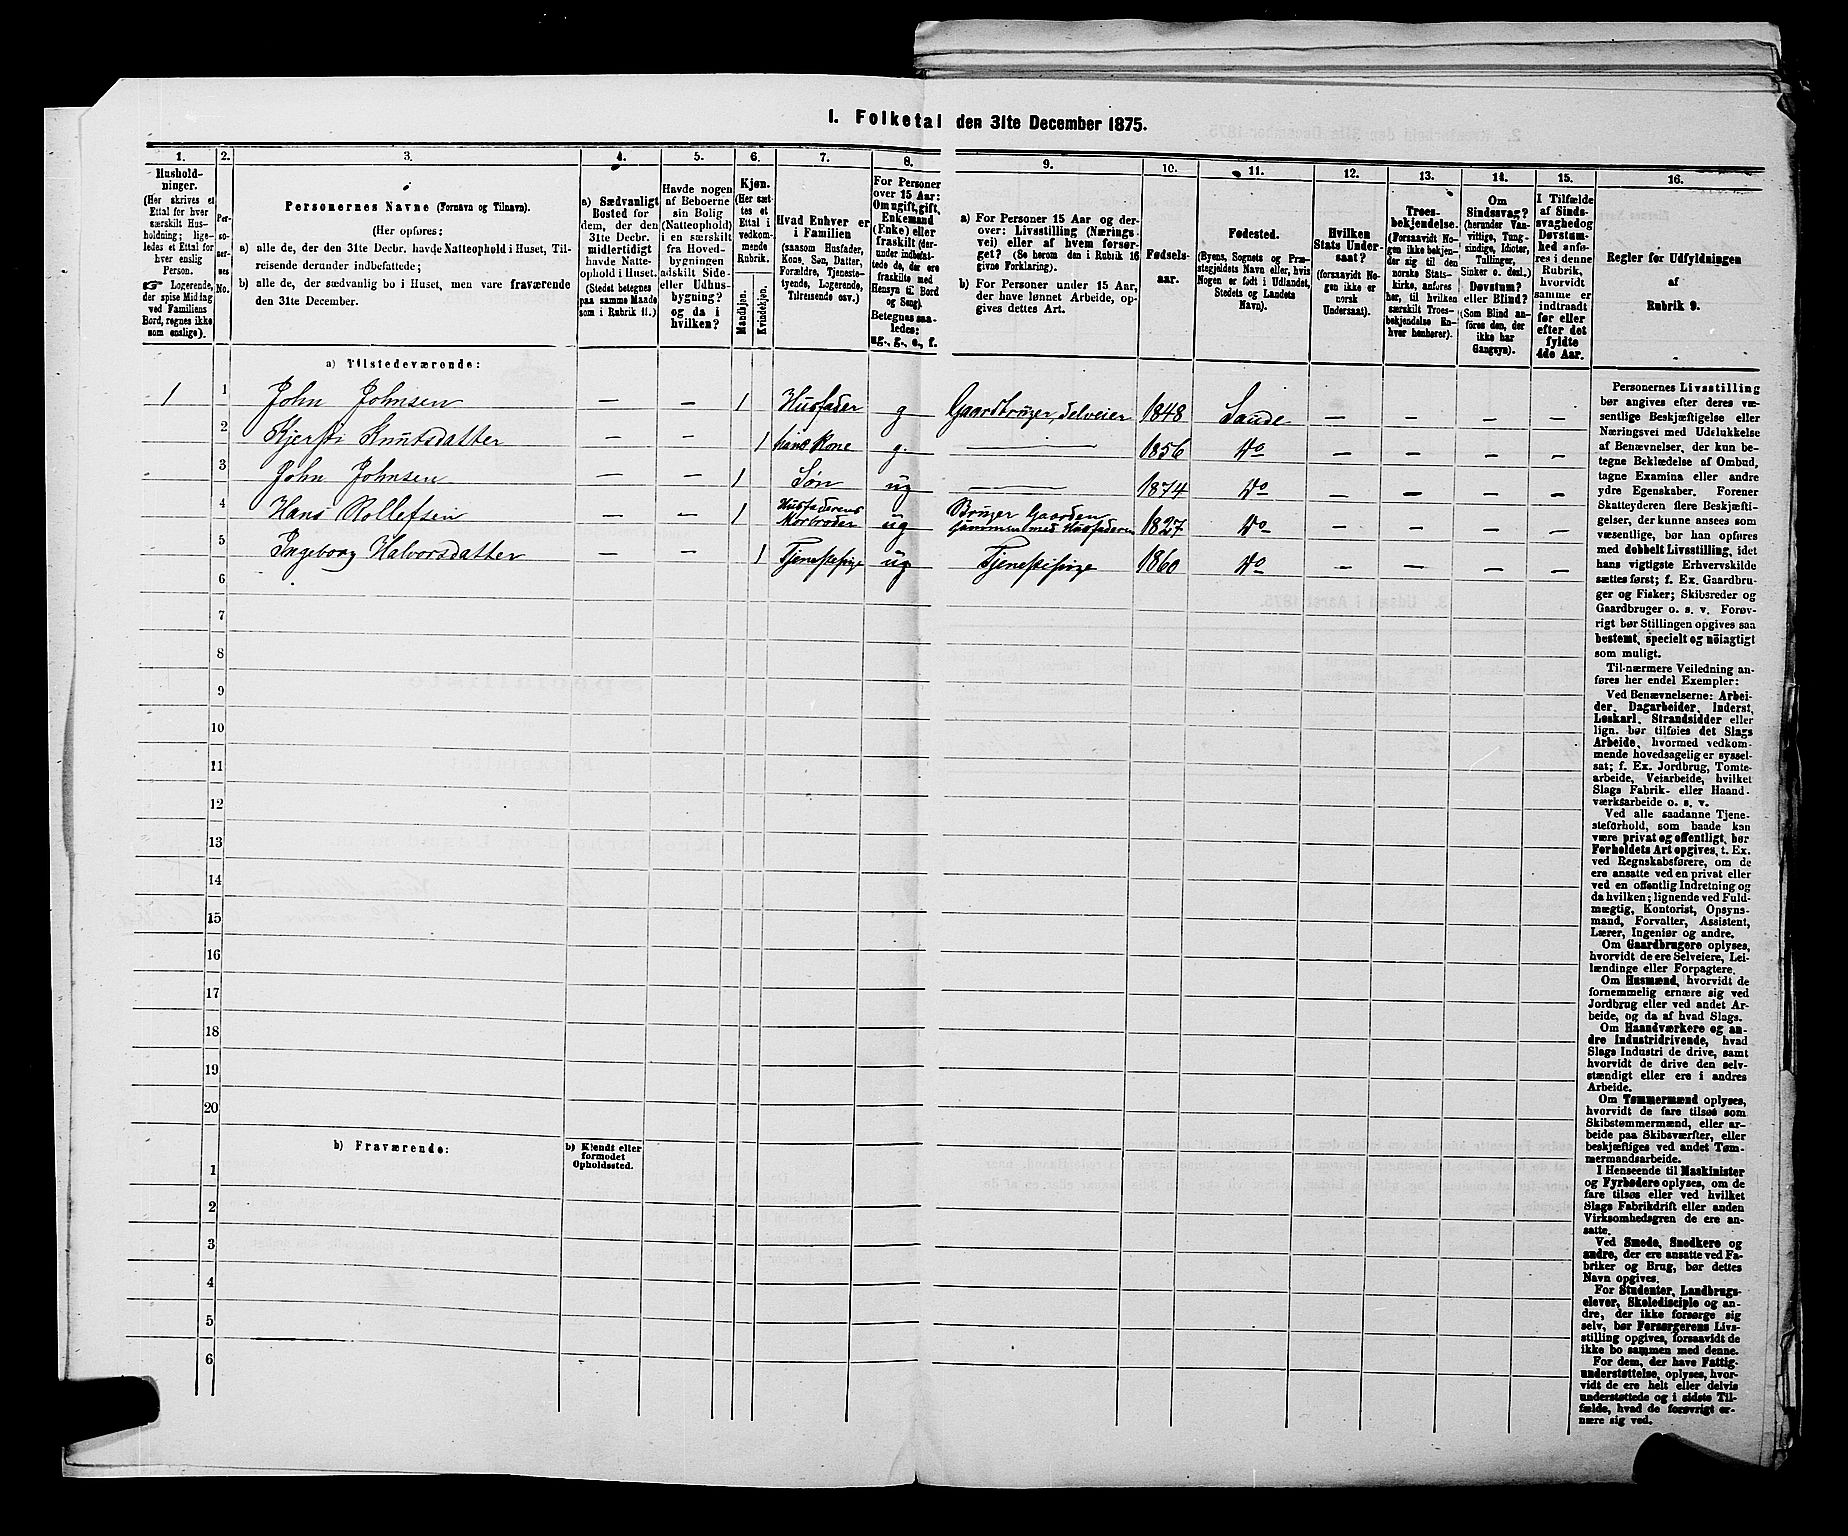 1. Folketal den 31te December 1875.
1.
2.
3.
4.
5.
6.
7.
8.
9.
10.
11.
12.
13.
14.
15.
16.
Hushold-
ninger.
(Her skrives et
Ettal for hver
særskilt Hus-
holdning; lige-
ledes et Ettal for
hver enslig
Person.
☞ Logerende,
der spise Middag
ved Familiens
Bord, regnes ikke
som enslige).
Per-
so-
ner-
nes
No.
Personernes Navne (Fornavn og Tilnavn).
(Her opføres:
a) alle de, der den 31te Decbr. havde Natteophold i Huset, Til-
reisende derunder indbefattede;
b) alle de, der sædvanlig bo i Huset, men vare fraværende
den 31te December.
a) Sædvanligt
Bosted for
dem, der den
31te Decbr.
midlertidigt
havde Natte-
ophold i Huset.
(Stedet betegnes
paa samme Maade
som i Rubrik 11.)
Havde nogen
af Beboerne
sin Bolig
(Natteophold)
i en særskilt
fra Hoved-
bygningen
adskilt Side-
eller Udhus-
bygning?
og da i
hvilken?
Kjøn.
(Her sæt-
tes et
Ettal i
vedkom-
mende
Rubrik.
Mandkjøn.
Kvindekjøn.
Hvad Enhver er
i Familien
(saasom Husfader,
Kone, Søn, Datter,
Forældre, Tjeneste-
tyende, Logerende,
Tilreisende osv.)
For Personer
over 15 Aar:
Om ugift, gift,
Enkemand
(Enke) eller
fraskilt (der-
under indbefat-
tede de, der ere
fraskilte med
Hensyn til Bord
og Seng).
Betegnes saa-
ledes:
ug., g., e., f.
a) For Personer 15 Aar og der-
over: Livsstilling (Nærings-
vei) eller af hvem forsør-
get? (Se herom den i Rubrik 16
givne Forklaring).
b) For Personer under 15 Aar,
der have lønnet Arbeide, op-
gives dettes Art.
Fødsels-
aar.
Fødested.
(Byens, Sognets og Præ-
stegjeldets Navn eller, hvis
Nogen er født i Udlandet,
Stedets og Landets
Navn).
Hvilken
Stats Under-
saat?
(forsaavidt No-
gen ikke er
norsk
Undersaat).
Troes-
bekjendelse.
(Forsaavidt No-
gen ikke bekjen-
der sig til den
norske Stats-
kirke, anføres
her, til hvilken
særskilt Troes-
bekjendelse En-
hver henhører).
Om
Sindssvag?
(herunder Van-
vittige, Tung-
sindige, Idioter,
Tullinger,
Sinker o. desl.)
Døvstum?
eller Blind?
(Som Blind an-
føres den, der
ikke har
Gangsyn).
I Tilfælde
af Sinds-
svaghed og
Døvstum-
hed anfø-
res i denne
Rubrik,
hvorvidt
samme er
indtraadt
før eller
efter det
fyldte
4de Aar.
Regler for Udfyldningen
af
Rubrik 9.
a) Tilstedeværende:
1 1 John Johnsen — — 1 Husfader g Gaardbruger, selveier 1848 Saude — — — —
2 Kjersti Knutsdatter — — 1 hans Kone g. — 1856 Do — — — —
3 John Johnsen — — 1 Søn ug — 1874 Do — — — —
4 Hans Rollefsen — — 1 Husfaderens Morbroder ug Bruger Gaarden sammen med Husfaderen 1827 Do — — — —
5 Ingeborg Halvorsdatter — — 1 Tjenestepige ug Tjenestepige 1860 Do — — — —
6
7
8
9
10
11
12
13
14
15
16
17
18
19
20
b) Fraværende:
b) Kjendt eller
formodet
Opholdssted.
1
2
3
4
5
6
Personernes Livsstilling
bør angives efter deres væ-
sentlige Beskjæftigelse eller
Næringsvei med Udelukkelse
af Benævnelser, der kun be-
tegne Beklædelse af Ombud,
tagne Examina eller andre
ydre Egenskaber. Forener
Skatteyderen flere Beskjæfti-
gelser, der kunne ansees som
væsentlige, bør han opføres
med dobbelt Livsstilling, idet
hans vigtigste Erhvervskilde
sættes først; f. Ex. Gaardbru-
ger og Fisker; Skibsreder og
Gaardbruger o. s. v. Forøv-
rigt bør Stillingen opgives saa
bestemt, specielt og nøiagtigt
som muligt.
Til nærmere Veiledning an-
føres her endel Exempler:
Ved Benævnelserne: Arbei-
der, Dagarbeider, Inderst,
Løskarl, Strandsidder eller
lign. bør tilføies det Slags
Arbeide, hvormed vedkom-
mende hovedsagelig er syssel-
sat; f. Ex. Jordbrug, Tomte-
arbeide, Veiarbeide, hvilket
Slags Fabrik- eller Haand-
værksarbeide o. s. v.
Ved alle saadanne Tjene-
steforhold, som baade kan
være privat og offentligt, bør
Forholdets Art opgives, t. Ex.
ved Regnskabsførere, om de
ere ansatte ved en privat eller
ved en offentlig Indretning og
da hvilken; lignende ved Fuld-
mægtig, Kontorist, Opsyns-
mand, Forvalter, Assistent,
Lærer, Ingeniør og andre.
Om Gaardbrugere oplyses,
hvorvidt de ere Selveiere, Lei-
lændinge eller Forpagtere.
Om Husmænd, hvorvidt de
fornemmelig ernære sig ved
Jordbrug eller ved andet Ar-
beide, og da af hvad Slags.
Om Haandværkere og an-
dre Industridrivende, hvad
Slags Industri de drive, samt
hvorvidt de drive den selv-
stændigt eller ere i andres
Arbeide.
Om Tømmermænd oplyses,
hvorvidt de fare tilsøs som
Skibstømmermænd, eller ar-
beide paa Skibsværfter, eller
beskjæftiges ved andet Tøm-
mermandsarbeide.
I Henseende til Maskinister
og Fyrbødere oplyses, om de
fare tilsøs eller ved hvilket
Slags Fabrikdrift eller anden
Virksomhedsgren de ere an-
satte.
Ved Smede, Snedkere og
andre, der ere ansatte ved Fa-
briker og Brug, bør dettes
Navn opgives.
For Studenter, Landbrugs-
elever, Skoledisciple og an-
dre, der ikke forsørge sig
selv, bør Forsørgerens Livs-
stilling opgives, forsaavidt de
ikke bo sammen med denne.
For dem, der have Fattig-
understøttelse, oplyses, hvor-
vidt de ere helt eller delvis
understøttede og i sidste Til-
fælde, hvad de forøvrigt er-
nære sig ved.